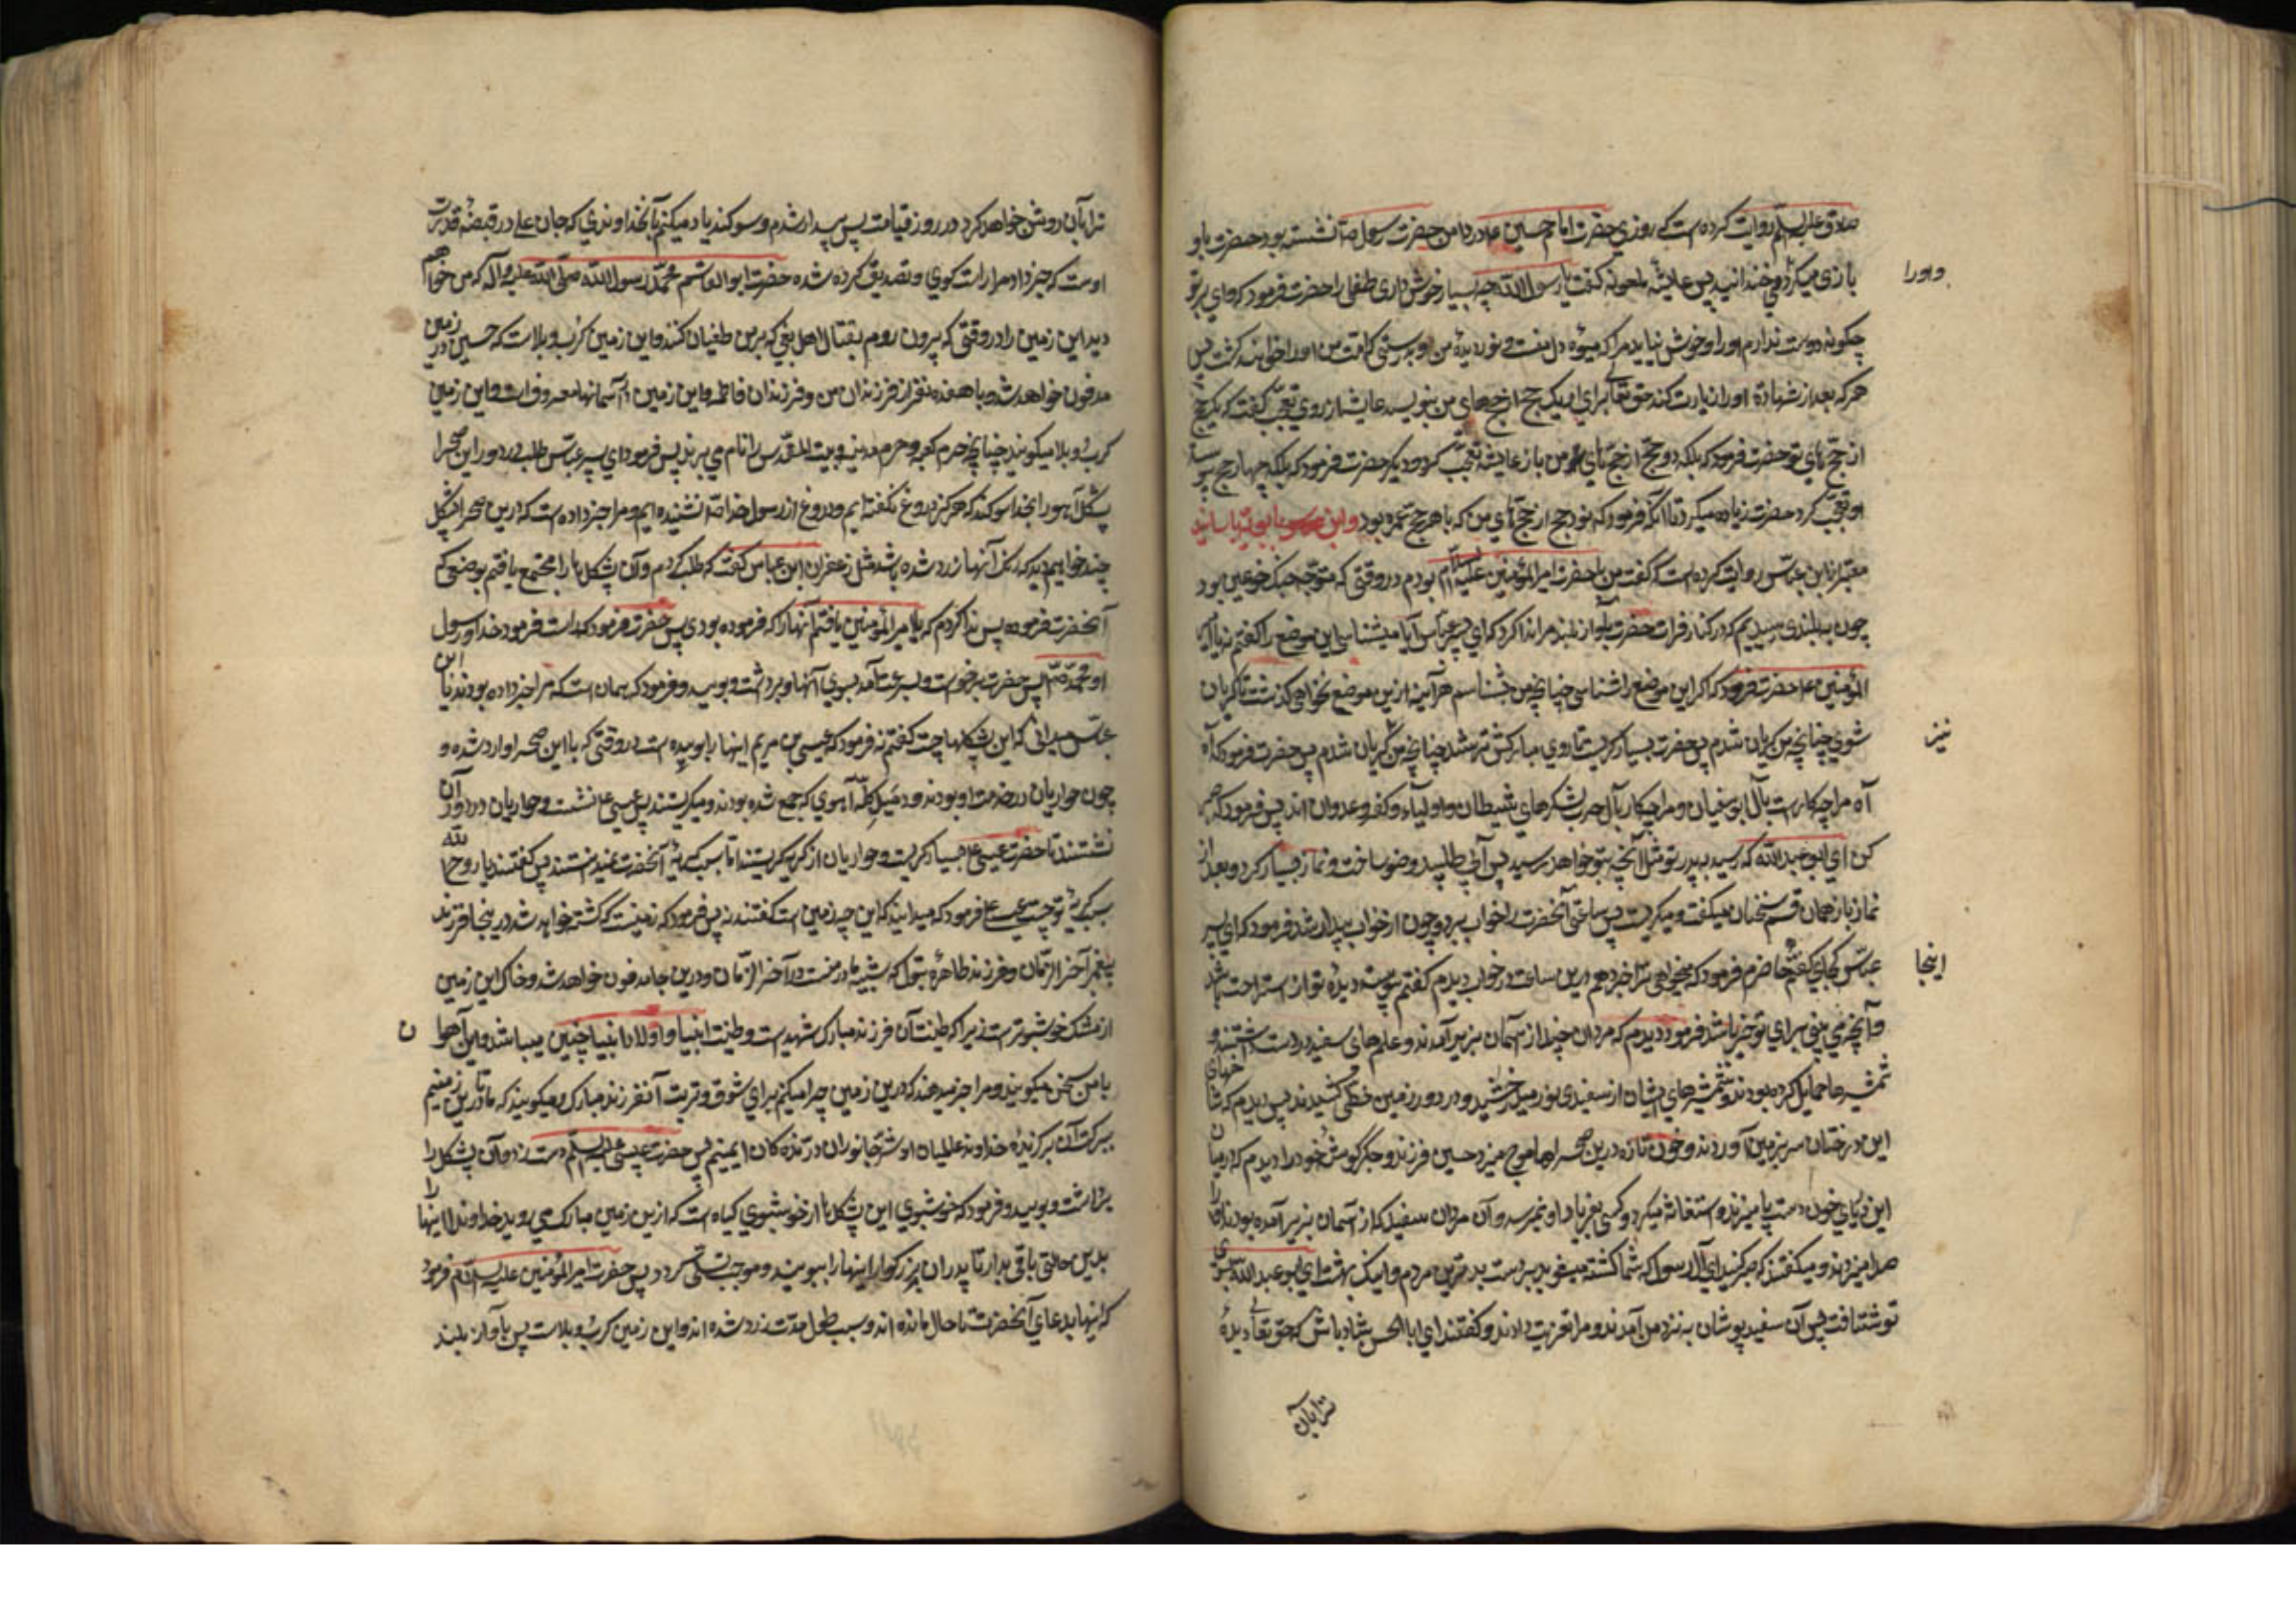 صادق علیه السلم روایت کرده است که روزی حضرت امام حسین ع در دامن حضرت رسول ص نشسته بود حضرت باو
بازی میکرد و می خندانید پس عایشه ملعونه گفت یا رسول الله چه بسیار خوش داری طفلی را حضرت فرمود که وای بر تو
و اورا
چگونه دوست ندارم اورا و خوش نیاید مرا که میوه دل منست و نور دیده من او بدرستی که امت من اورا خواهند کشت پس
هر که بعد از شهادة اورا زیارت کند حق تعالی برای او یک حج از حجهای من بنویسد عایشه از روی تعجب گفت که یک حج
از حج های تو حضرت فرمود که بلکه دو حج از حج های من باز عایشه تعجب کرد و دیگر حضرت فرمود که بلکه چهار حج
او تعجب کرد حضرت زیاده میکرد تا آنکه فرمود که نود حج از حج های من که با هر حج عمره بود و ابن بابویه باسانید
معتبر از ابن عباس روایت کرده است که گفت من با حضرت امیر المؤمنین علیه السلام بودم در وقتی که متوجه جنک بود
چون به نینوی رسیدیم که در کنار فرات حضرت بآواز بلند مرا ندا کرد که ای پسر عباس آیا میشناسی این موضع را گفتم نه یا امیر
المؤمنین ع حضرت فرمود که اگر این موضع را شناسی چنانچه من شناسم هر آینه ازین موضع نخواهی گذشت تا گریان
شوی چنانچه من گریان شدم پس حضرت بسیار گریست تا روی مبارکش تر شد چنانچه من گریان شدم پس حضرت فرمود که آه
نیز
آه مرا چکارست بآل ابو سفیان و مرا چکار بآل حرب لشکرهای شیطان و اولیاء کفر و عدوان اند پس فرمود که صبر
کن ای ابو عبد الله که رسید به پدر تو مثل آنچه بتو خواهد رسید پس آبی طلبید و وضو ساخت و نماز بسیار کرد و بعد از
نماز باز همان قسم سخنان میگفت و میگریست پس ساعتی آنحضرت را خواب برد و چون از خواب بیدار شد فرمود که ای پسر
عباس کجایی گفتم حاضرم فرمود که میخواهی ترا خبر دهم درین ساعت در خواب دیدم گفتم پیوسته دیده تو از استراحت باشد
اینجا
و آنچه می بینی برای تو خیر باشد فرمود دیدم که مردان چند از آسمان بزیر آمدند و علمهای سفید در دست داشتند و
شمشیرها حمایل کرده بودند و شمشیرهای ایشان از سفیدی نور میدرخشید و در دور زمین خطی کشیدند پس دیدم که شاخهای
این درختان سر بزمین آوردند و خون تازه درین صحرا موج میزد و حسین فرزند و جگر گوشه خود را دیدم که در میان
این دریای خون دست پا میزند و استغاثه میکرد و کسی بفریاد او نمیرسد و آن مردان سفید که از آسمان بزیر آمده بودند او را
صدا میزدند و میگفتند که صبر کنید ای آل رسول که شما کشته میشوید بدست بدترین مردم و اینک بهشت ای ابو عبد الله بسوی
تو شتافت پس آن سفید پوشان به نزد من آمدند و مرا تعزیت دادند و گفتند ای ابا الحسن شاد باش که حق تعالی دیده
ترا بآن
ترا بآن روشن خواهد کرد در روز قیامت پس بیدار شدم و سوگند یاد میکنم بآنخداوندی که جان علی در قبضه قدرت
اوست که خبر داد مرا راست گوی و تصدیق کرده شده حضرت ابو القاسم محمد رسول الله صلی الله علیه و آله که من خواهم
دید این زمین را در وقتی که بیرون روم بقتال اهل بغی که بر من طغیان کنند و این زمین کرب و بلاست که حسین در زمین
مدفون خواهد شد با هفده نفر از فرزندان من و فرزندان فاطمه و این زمین در آسمانها معروفست و این زمین
کرب و بلا میگویند چنانچه حرم کعبه و حرم مدینه و بیت المقدس را نام می برند پس فرمود ای پسر عباس طلب در دور این صحرا
پشکل آهو را بخدا سوگند که هرگز دروغ نگفته ایم و دروغ از رسول خدا ص نشنیده ایم و مرا خبر داده است که درین صحرا پشکل
چند خواهیم دید که رنگ آنها زرد شده باشد مثل زعفران ابن عباس گفت که طلب کردم و آن پشکل ها را مجتمع یافتم بوضعی که
آنحضرت فرموده پس ندا کردم که یا امیر المؤمنین یافتم آنها را که فرموده بودی پس حضرت فرمود که راست فرمود خدا و رسول
او محمد ص پس حضرت برخواست و بسرعت آمد بسوی آنها و برداشت و بویید و فرمود که همان است که مرا خبر داده بودند یا ابن
عباس میدانی که این پشکلها چیست گفتم نه فرمود که عیسی بن مریم اینها را بوییده است در وقتی که باین صحرا وارد شده و
چون حواریان در خدمت او بودند و دید گله آهوی که جمع شده بودند و میگریستند پس عیسی ع نشست و حواریان در دور آن
نشستند تا حضرت عیسی ع بسیار گریست و حواریان از گریه گریستند اما سبب گریه آنحضرت نمیدانستند پس گفتند یا روح الله
سبب گریه تو چیست عیسی ع فرمود که میدانید که این چه زمین است گفتند نه پس فرمود که زمینیست که کشته خواهد شد در ینجا فرزند
پیغمبر آخر الزمان و فرزند طاهره بتول که شبیه مادر منست در آخر الزمان و درین جا مدفون خواهد شد و خاک این زمین
از مشک خوشبوترست زیرا که طینت آن فرزند مبارک شهید است و طینت انبیا و اولاد انبیا چنین میباشد و این آهوا
ن
با من سخن میگویند و مرا خبر میدهند که درین زمین چرا میکنیم برای شوق و تربت آنفرزند مبارک و میگویند که ما تا درین زمینیم
ببرکت آن برگزیده خداوند عالمیان از شر جانوران درنده گان ایمنیم پس حضرت عیسی علیه السلم دست زد و آن پشکل را
برداشت و بویید و فرمود که خوشبوی این پشکل ها از خوشبوی گیاه است که ازین زمین مبارک می روید خداوندا اینها را
بدین حالتی باقی بدار تا پدران بزرگوار اینها را ببویند و موجب تسلی گردد پس حضرت امیر المؤمنین علیه السلام فرمود
که اینها بدعای آنحضرت تا حال مانده اند و بسبب طول مدت زرد شده اند و این زمین کرب و بلاست پس بآواز بلند